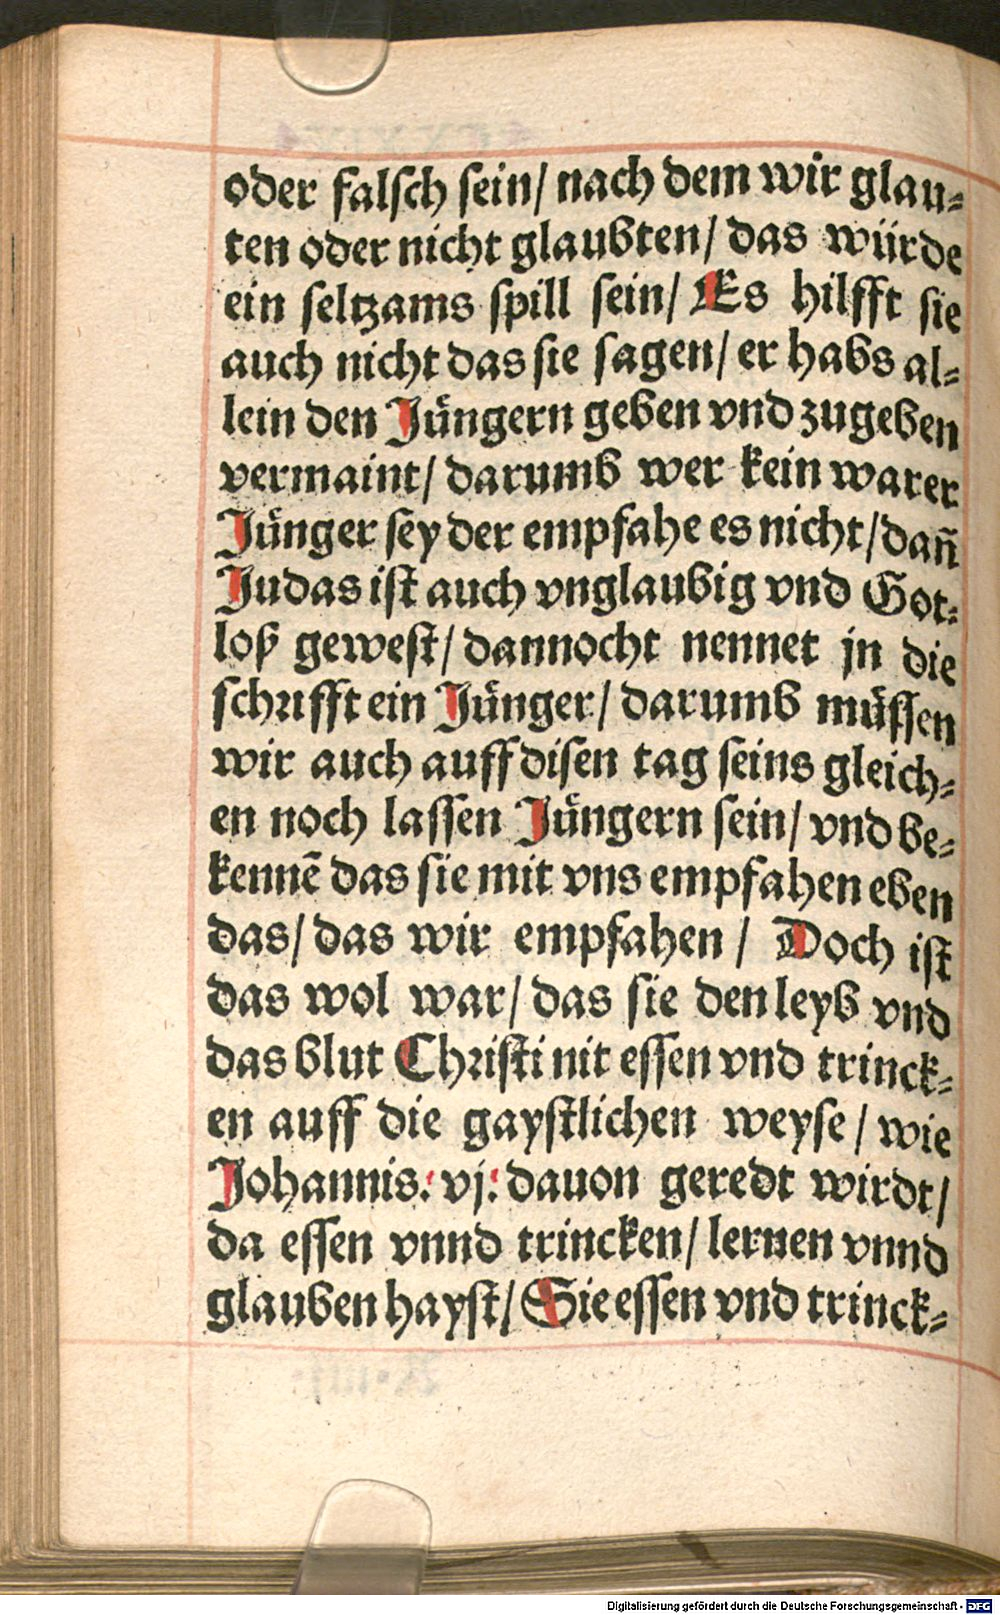 oder falsch sein/ nach dem wir glau⸗
ten oder nicht glaubten/ das würde
ein seltzams spill sein/ Es hilfft sie
auch nicht das sie sagen/ er habs al⸗
lein den Jüngern geben vnd zugeben
vermaint/ darumb wer kein warer
Jünger sey der empfahe es nicht/ dañ
Judas ist auch vnglaubig vnd Got⸗
loß gewest/ dannocht nennet jn die
schrifft ein Jünger/ darumb müssen
wir auch auff disen tag seins gleich⸗
en noch lassen Jüngern sein/ vnd be⸗
kennē das sie mit vns empfahen eben
das/ das wir empfahen / Doch ist
das wol war/ das sie den leyb vnd
das blut Christi nit essen vnd trinck⸗
en auff die gaystlichen weyse / wie
Johannis. vj. dauon geredt wirdt/
da essen vnnd trincken/ lernen vnnd
glauben hayst/ Sie essen vnd trinck⸗
Digitalisierung gefördert durch die Deutsche Forschungsgemeinschaft - DFG